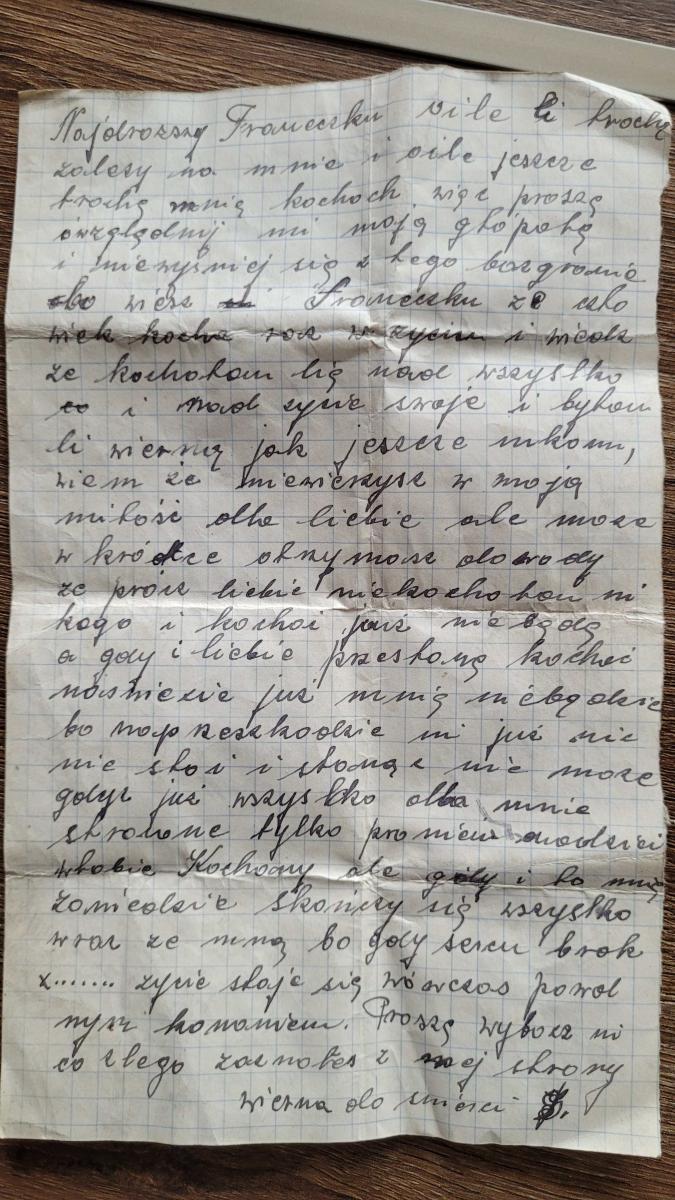 Najdrozszy Franeczku oile ci trochę
zalezy na mnie i oile jeszcze
trochę mnię kochoch więc proszę
uwzględnij mi moją głópotę
i niewyśniej się z tego bazgranie
bo wiesz Franeczku ze czło
wiek kocha raz w zyciu i wiedz
ze kochałam cię nad wszystko
i nad zycie swoje i byłam
ci wierną jak jeszcze nikomu,
wiem że niewierzysz w moją
miłość dlla ciebie ale moze
w kródce otrzymasz dowody
ze prócz ciebie niekochałam ni
kogo i kochać już niebędę
a gdy i ciebie przestanę kochać
naświecie już mnię niebędzie
bo naprzeszkodzie mi już nic
nie stoi i stanąć nie moze
gdyz już wszystko dlla mnie
stracone tylko promień nadziei
wtobie Kochany ale gdy i to mnię
zawiedzie skończy się wszystko
wraz ze mną bo gdy sercu brak
z....... zycie staje się wówczas powol
nym konaniem. Proszę wybacz mi
co złego zaznałeś z mej strony
wierna do smierci